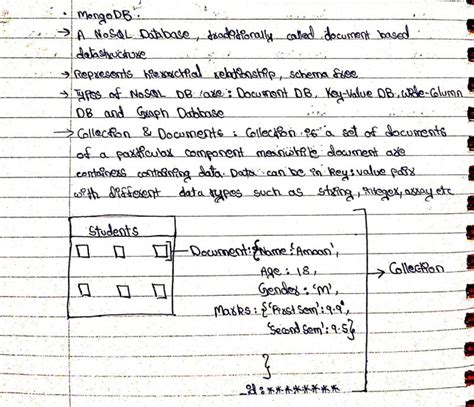 • MongoDB.
→ A NoSQL Database, traditionally called document based
datastructure
→ Represents hierarctial relationship, schema free
→ Types of NoSQL DB are: Document DB, Key-Value DB, wide-Column
DB and Graph Database
→ Collection & Documents: Collection is a set of documents
of a particular component meanwhile document are
containers containing data. Data can be in key:value pair
with different data types such as string, integer, array etc
Students
Document: {Name: 'Amaan',
Age: 18,
Gender: 'M',
Marks: {'First Sem': 9.9,
'Second Sem': 9.5}
}
→ Collection